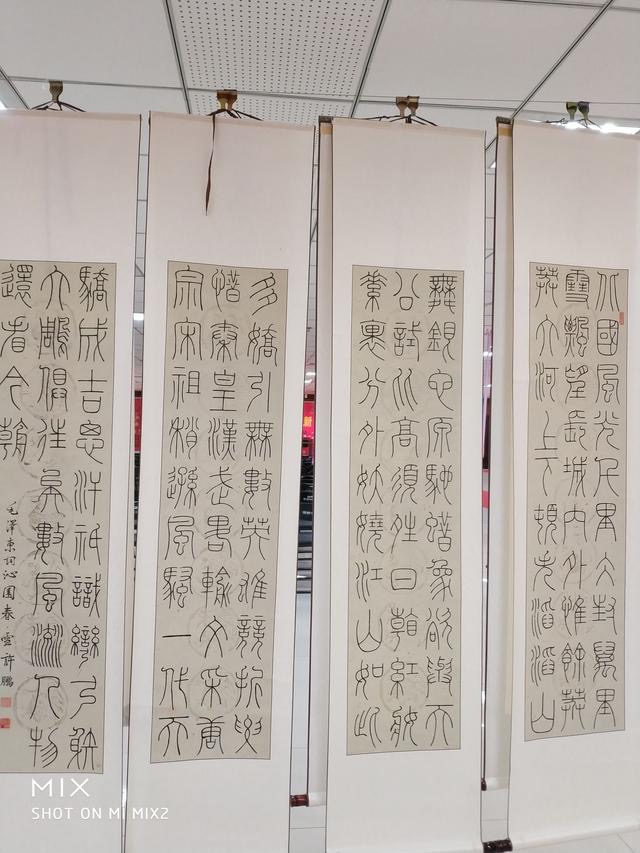 北國風光千里冰封萬里
雪飄望長城內外惟餘莽
莽大河上下頓失滔滔山
舞銀蛇原馳蠟象欲與天
公試比高須晴日看紅妝
素裹分外妖嬈江山如此
多嬌引無數英雄競折腰
惜秦皇漢武略輸文采唐
宗宋祖稍遜風騷一代天
驕成吉思汗祇識彎弓射
大雕俱往矣數風流人物
還看今朝
毛澤東詞沁園春雪許鵬
MIX
SHOT ON MI MIX2